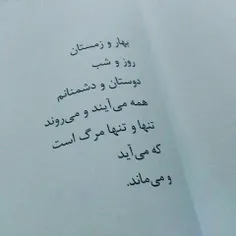 بهار و زمستان
روز و شب
دوستان و دشمنانم
همه می‌آیند و می‌روند
تنها و تنها مرگ است
که می‌آید
و می‌ماند.